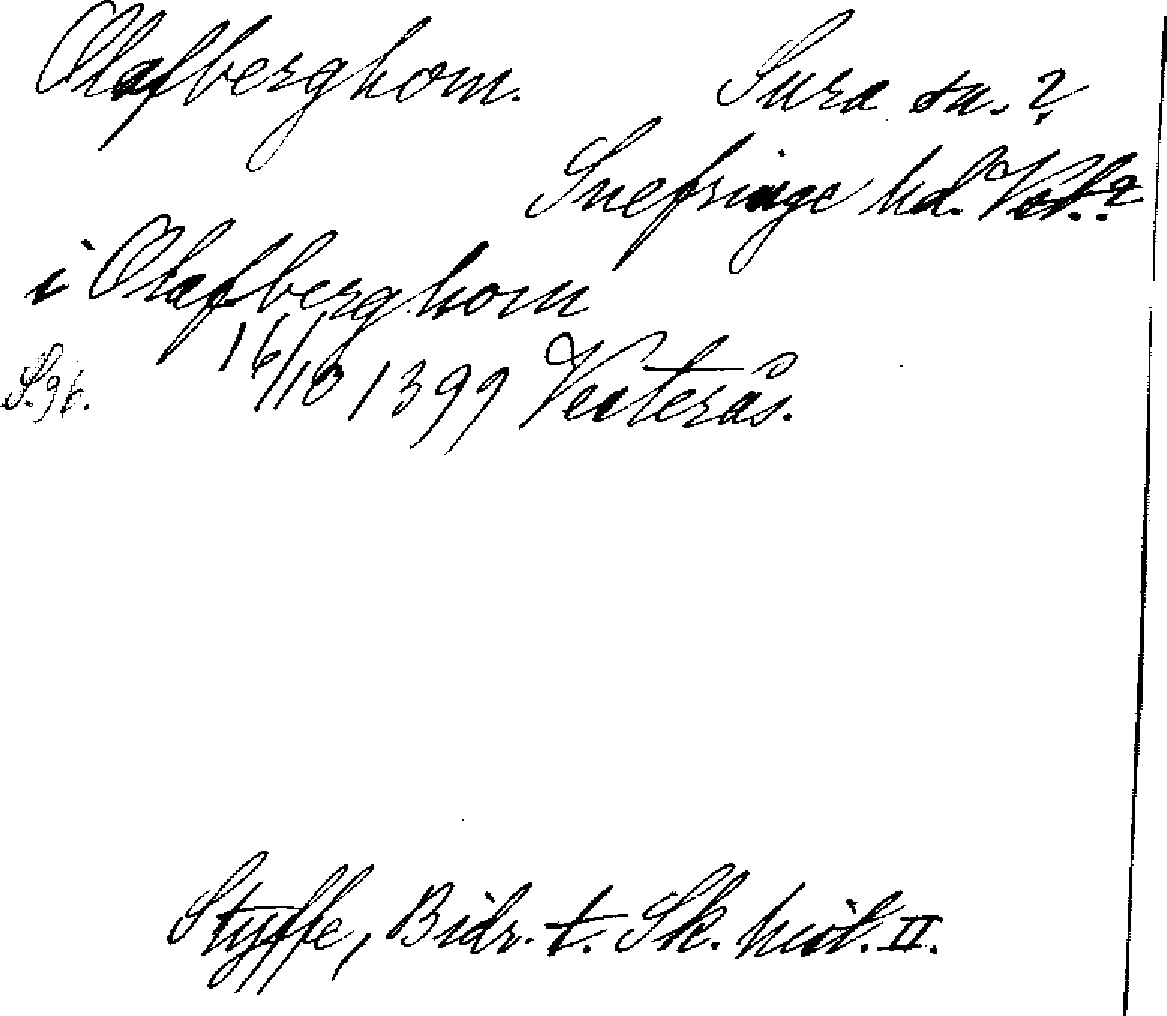 Olafberghom. Sura sn.?
Snefringe hd. Vstm.?
i Olafberghom
S.96. 16/10 1399 Vesterås.
Styffe, Bidr. t. Sk. hist. II.